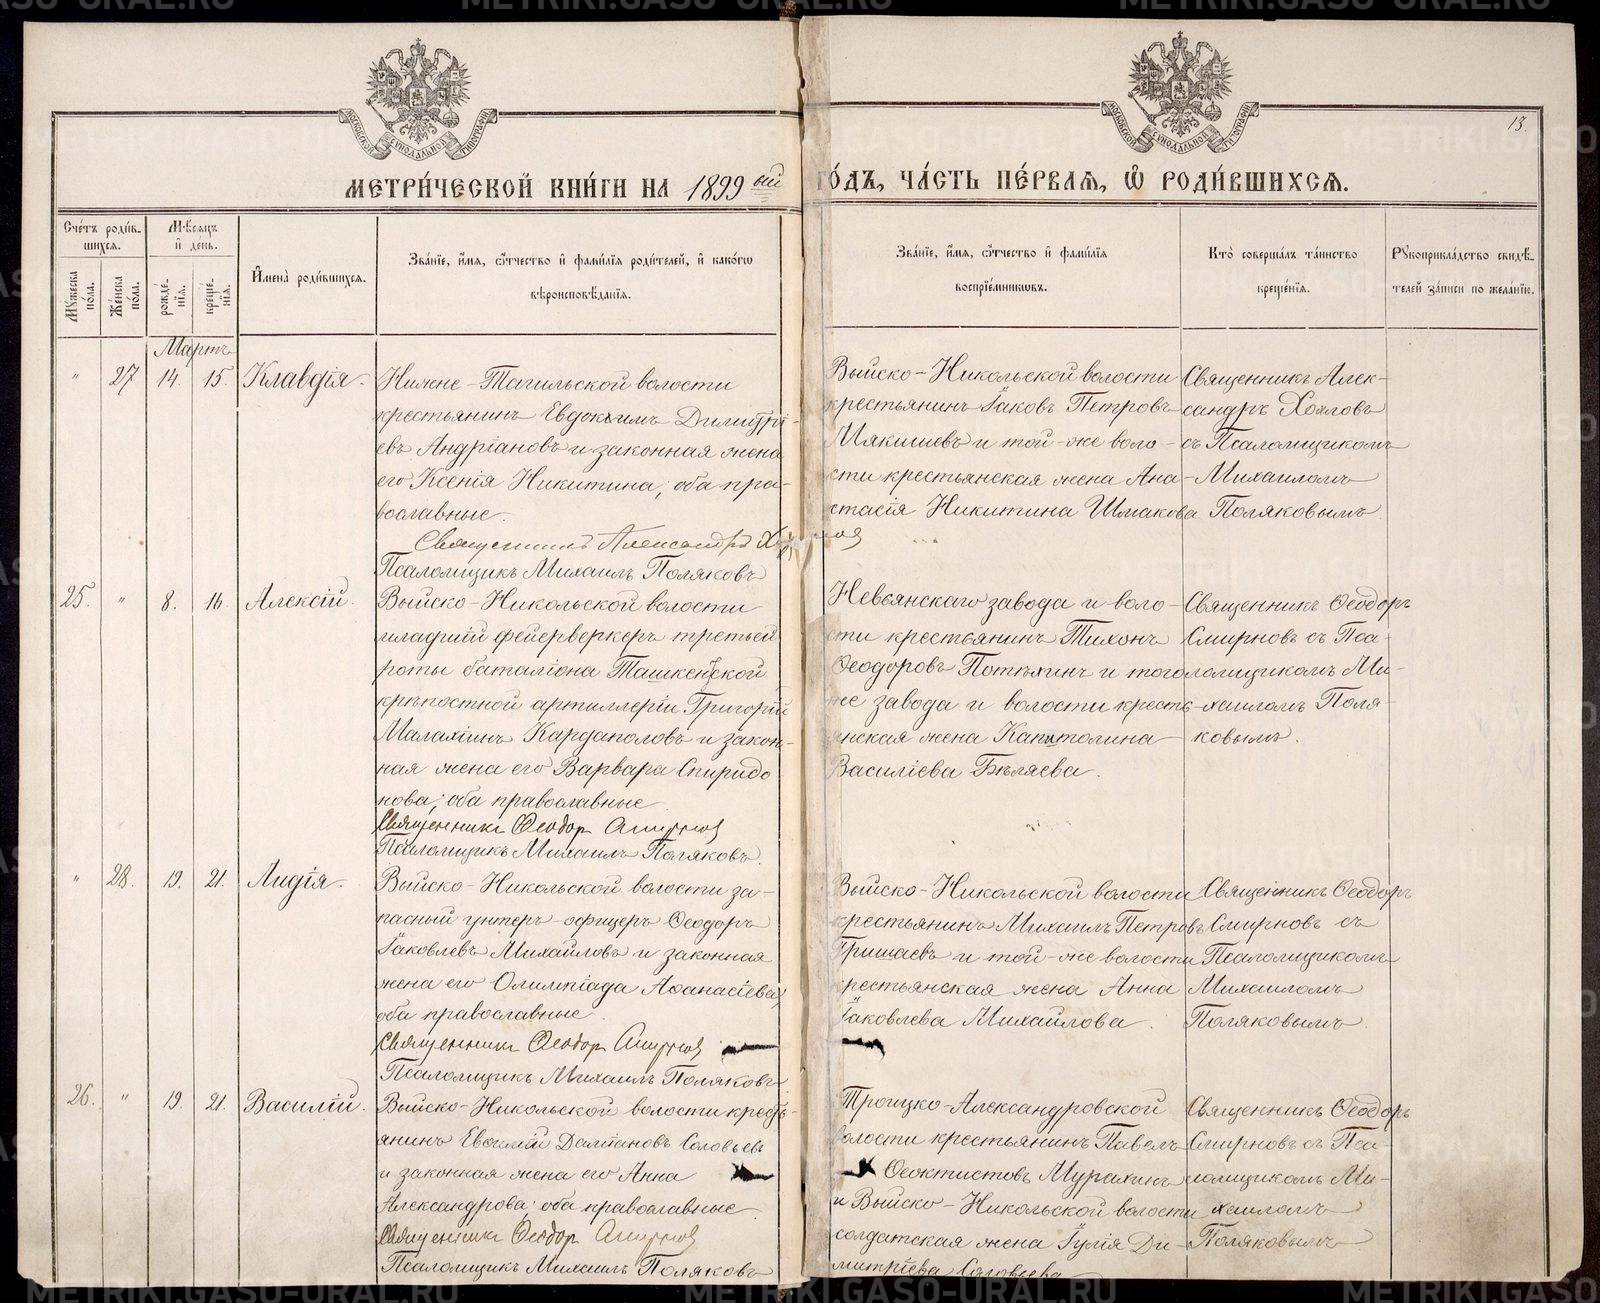 МОСКОВСКОЙ СУНОДАЛЬНОЙ ТИПОГРАФІИ
МОСКОВСКОЙ СУНОДАЛЬНОЙ ТИПОГРАФІИ
13.
МЕТРИ́ЧЕСКОЙ КНИ́ГИ НА 1899 ый
ГО́ДЪ, ЧА́СТЬ ПЕ́РВАЯ, Ѽ РОДИ́ВШИХСЯ.
Сче́тъ роди́в-
шихся.
Мꙋжеска по́ла.
Же́нска по́ла.
Мѣ́сяцъ
и҆ де́нь.
рожде́-
нія.
креще́-
нія.
И҆мена̀ роди́вшихся.
Зва́нїе, и҆́мя, ѻ҆́тчество и҆ фами́лїя роди́телей, и҆ како́гѡ
вѣроисповѣ́данїя.
Зва́нїе, и҆́мя, ѻ҆́тчество и҆ фами́лїя
воспрїе́мниковъ.
Кто̀ соверша́лъ та́инство
креще́нїя.
Рꙋкоприкла́дство свидѣ́-
телей за́писи по жела́нїю.
Мартъ
" 27 14. 15. Клавдія.
Нижне-Тагильской волости
крестьянинъ Евдокимъ Димитрі-
евъ Андріановъ и законная жена
его Ксенія Никитина; оба пра-
вославные.
Священникъ Александръ Хохловъ
Псаломщикъ Михаилъ Поляковъ
Выйско-Никольской волости
крестьянинъ Іаковъ Петровъ
Мякишевъ и той-же воло-
сти крестьянская жена Ана-
стасія Никитина Шмакова
Священникъ Алек-
сандръ Хохловъ
съ Псаломщикомъ
Михаиломъ
Поляковымъ
25. " 8. 16. Алексій.
Выйско-Никольской волости
младшій фейерверкеръ третьей
роты баталіона Ташкентской
крѣпостной артиллеріи Григорій
Малахіинъ Кардаполовъ и закон-
ная жена его Варвара Спиридо
нова; оба православные
Священникъ Ѳеодоръ Смирновъ
Псаломщикъ Михаилъ Поляковъ.
Невьянскаго завода и воло-
сти крестьянинъ Тихонъ
Ѳеодоровъ Потѣхинъ и того
же завода и волости кресть-
янская жена Капитолина
Василіева Бѣляева.
Священникъ Ѳеодоръ
Смирновъ съ Пса-
ломщикомъ Ми-
хаиломъ Поля-
ковымъ.
" 28. 19. 21. Лидія.
Выйско-Никольской волости за-
пасный унтеръ-офицеръ Ѳеодоръ
Іаковлевъ Михайловъ и законная
жена его Олимпіада Аѳанасіева;
оба православные.
Священникъ Ѳеодоръ Смирновъ
Псаломщикъ Михаилъ Поляковъ
Выйско-Никольской волости
крестьянинъ Михаилъ Петровъ
Гришаевъ и той-же волости
крестьянская жена Анна
Іаковлева Михайлова.
Священникъ Ѳеодоръ
Смирновъ съ
Псаломщикомъ
Михаиломъ
Поляковымъ
26. " 19. 21. Василій.
Выйско-Никольской волости кресть-
янинъ Евѳимій Даміановъ Соловьевъ
и законная жена его Анна
Александрова; оба православные
Священникъ Ѳеодоръ Смирновъ
Псаломщикъ Михаилъ Поляковъ
Троицко-Александровской
волости крестьянинъ Павелъ
Ѳеоктистовъ Мурахинъ
и Выйско-Никольской волости
солдатская жена Іулія Ди-
митріева Соловьева
Священникъ Ѳеодоръ
Смирновъ съ Пса-
ломщикомъ Ми-
хаиломъ
Поляковымъ
METRIKI.GASO-URAL.RU